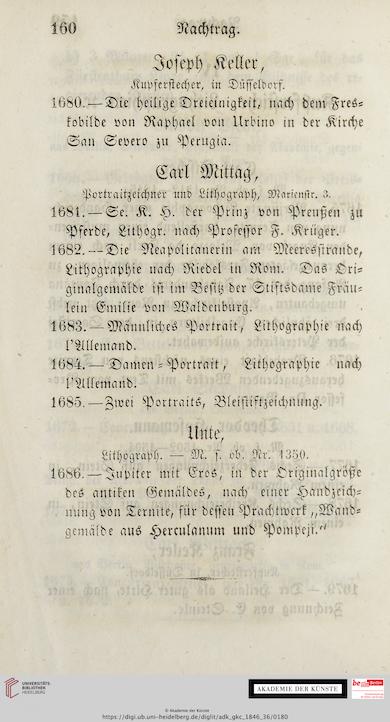 160 Nachtrag.
Joseph Keller,
Kupferstecher, in Düsseldorf.
1680.—Die heilige Dreieinigkeit, nach dem Fres-
kobilde von Raphael von Urbino in der Kirche
San Severo zu Perugia.
Carl Mittag,
Portraitzeichner und Lithograph, Marienstr. 3.
1681.—Se. K. H. der Prinz von Preußen zu
Pferde, Lithogr. nach Professor F. Krüger.
1682.—Die Neapolitanerin am Meeresstrande,
Lithographie nach Riedel in Rom. Das Ori-
ginalgemälde ist im Besitz der Stiftsdame Fräu-
lein Emilie von Waldenburg.
1683.—Männliches Portrait, Lithographie nach
l'Allemand.
1684.—Damen-Portrait, Lithographie nach
l'Allemand.
1685.—Zwei Portraits, Bleistiftzeichnung.
Unte,
Lithograph. — M. s. ob. Nr. 1350.
1686.—Jupiter mit Eros, in der Originalgröße
des antiken Gemäldes, nach einer Handzeich-
nung von Ternite, für dessen Prachtwerk „Wand-
gemälde aus Herculanum und Pompeji.“
UNIVERSITÄTS-
BIBLIOTHEK
HEIDELBERG
AKADEMIE DER KÜNSTE
© Akademie der Künste
https://digi.ub.uni-heidelberg.de/diglit/adk_gkc_1846_36/0180